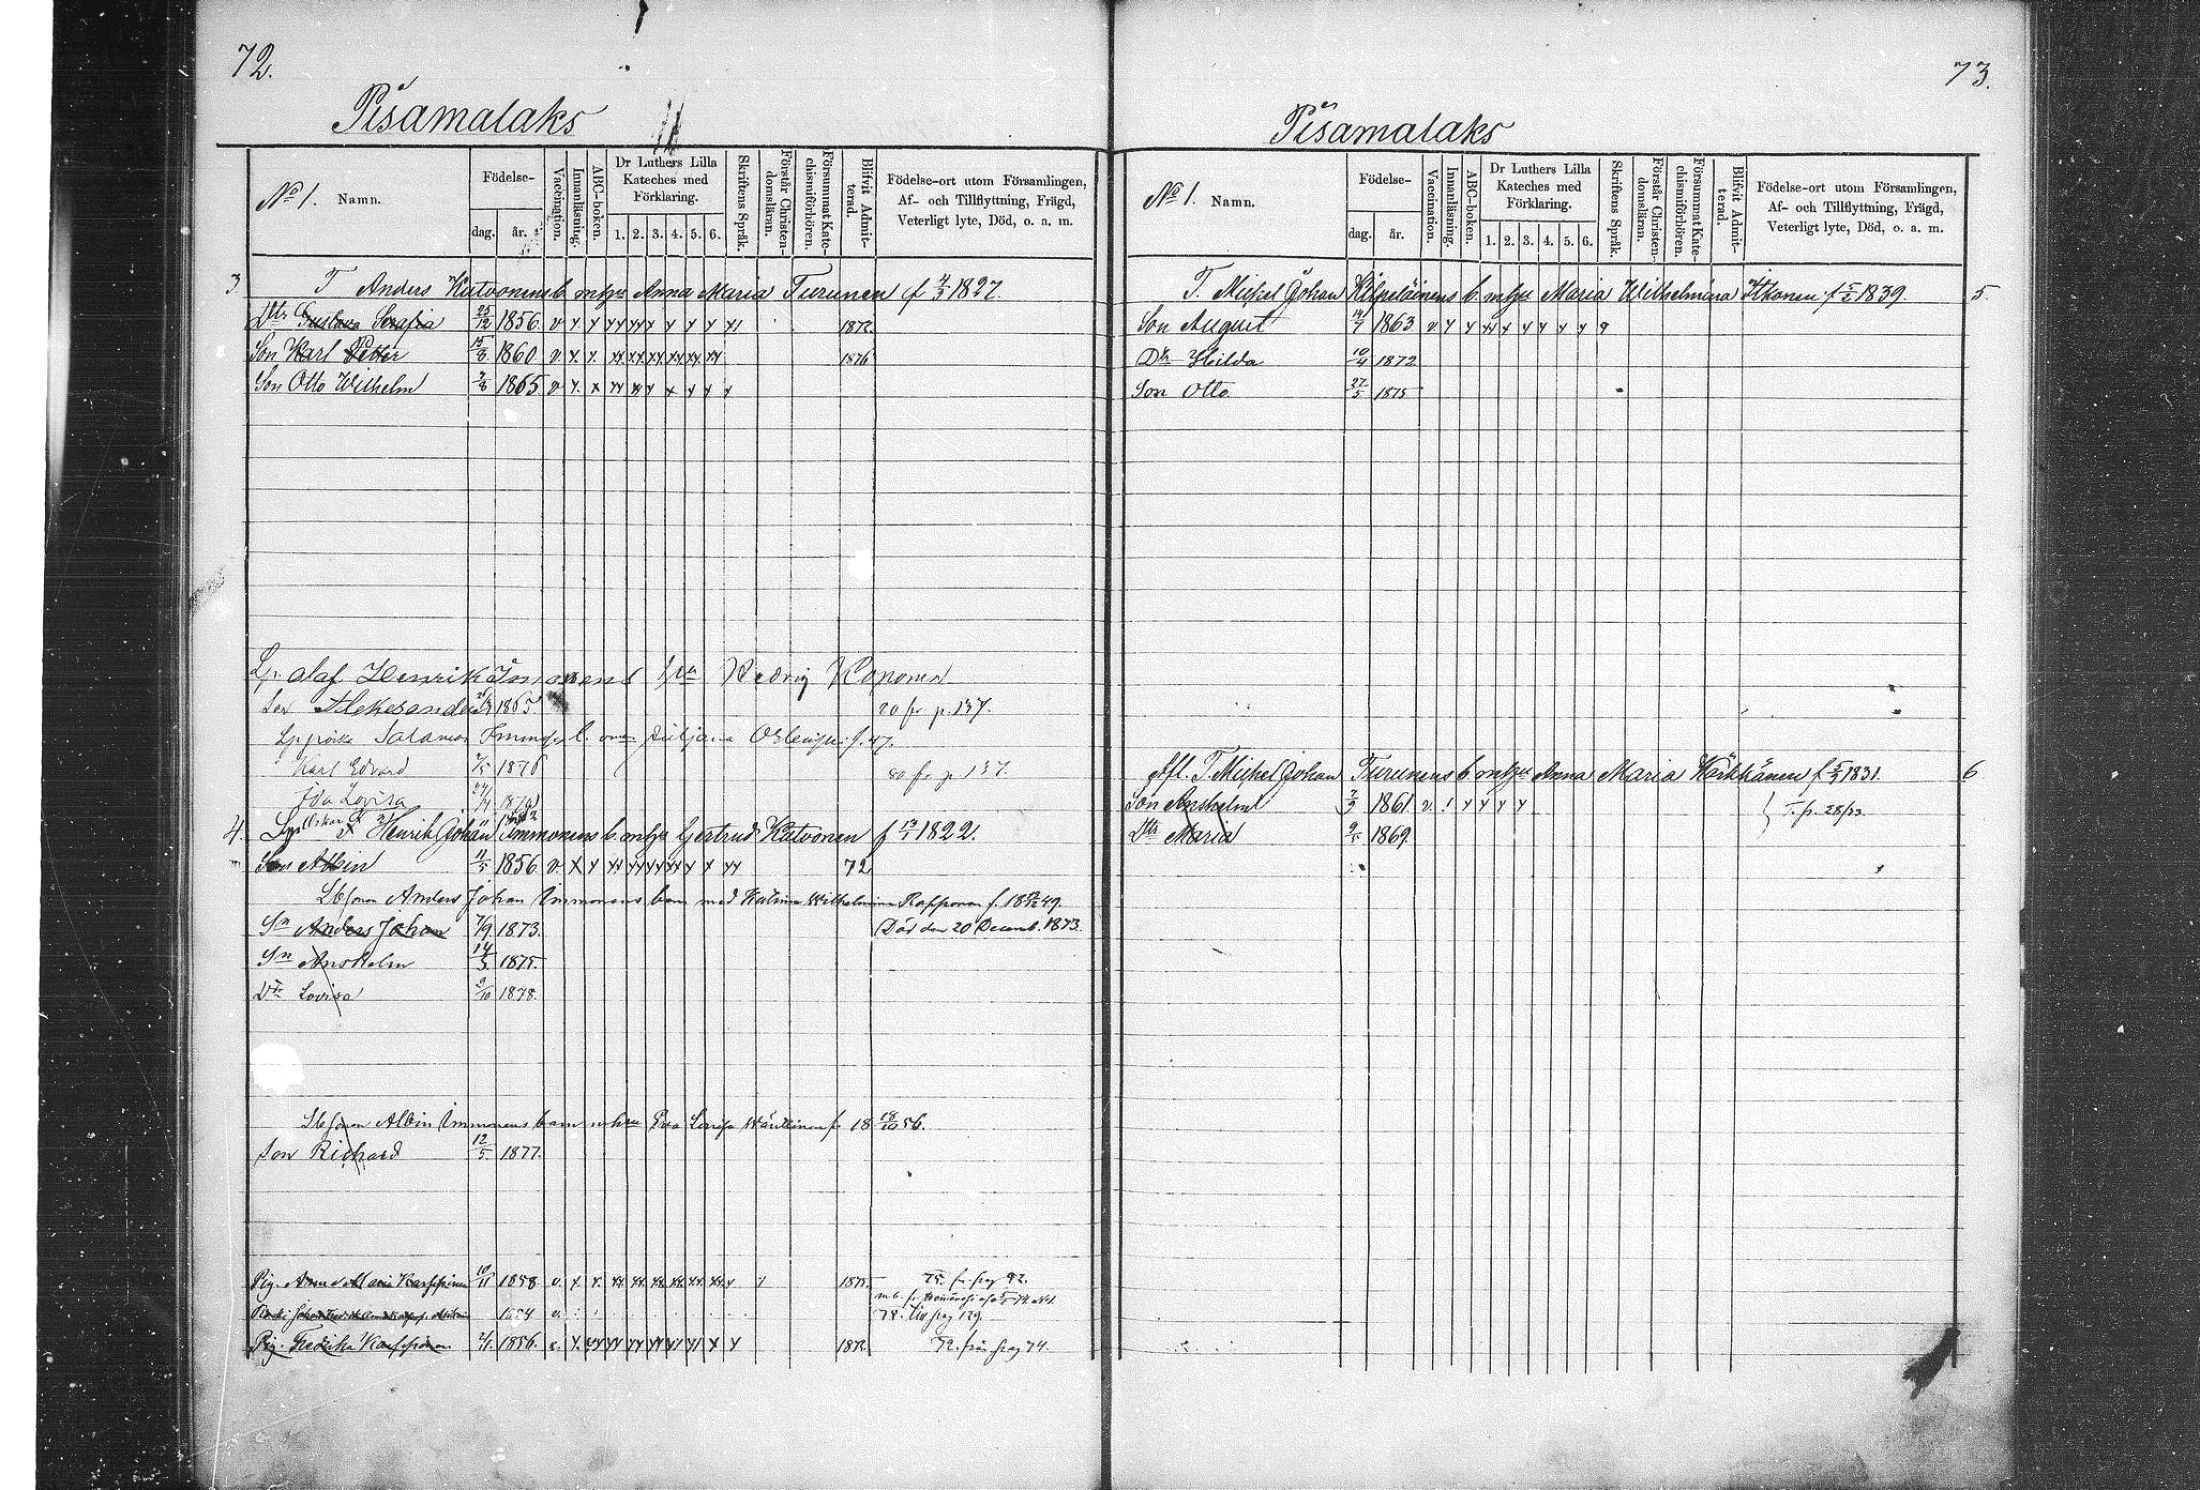 72.
Pisamalaks
No 1. Namn.
Födelse-
dag. år.
Vaccination.
Innanläsning.
ABC-boken.
Dr Luthers Lilla Kateches med Förklaring.
1. 2. 3. 4. 5. 6.
Skriftens Språk.
Förstår Christendomsläran.
Försummat Katechismiförhören.
Blifvit Admitterad.
Födelse-ort utom Församlingen,
Af- och Tillflyttning, Frägd,
Veterligt lyte, Död, o. a. m.
3 T Anders Katvonens b. m hu Anna Maria Turunen f 4/3 1827.
Dtr Gustava Serafia 25/12 1856 v 1872.
Son Karl Petter 15/8 1860 v 1876
Son Otto Wilhelm 7/8 1865 v
Olaf Henrik Immonens Hedvig Koponen
Son Aleksander 1865. 80 fr. p. 137.
Salamon f. 47.
Karl Edvard 2/5 1876 80 fr. p. 137.
Ida Lovisa 24/4
4. Henrik Johan Immonens b. m hu Gertrud Katvonen f 13/1 1822.
Son Albin 11/5 1856 v. 72
Anders Johan Immonens barn med Katrina Wilhelmina Rapponen f. 18 49.
Sn Anders Johan 7/9 1873. Död den 20 Decemb. 1873.
Sn Anshelm 14/3 1875.
Dtr Lovisa 9/10 1878.
Albin Immonens barn m hu Eva Lovisa f 18 18/10 56.
Son Richard 12/5 1877.
Pig. Anna Maria Karppinen 10/11 1858 v. 1875 75. fr pag 92.
1854 v. 78. Till pag 129.
Pig. Fredrika Karppinen 2/1 1856 v. 1872 72. från pag 74.
73.
Pisamalaks
No 1. Namn.
Födelse-
dag. år.
Vaccination.
Innanläsning.
ABC-boken.
Dr Luthers Lilla Kateches med Förklaring.
1. 2. 3. 4. 5. 6.
Skriftens Språk.
Förstår Christendomsläran.
Försummat Katechismiförhören.
Blifvit Admitterad.
Födelse-ort utom Församlingen,
Af- och Tillflyttning, Frägd,
Veterligt lyte, Död, o. a. m.
T. Michel Johan Kilpeläinens b. m hu Maria Wilhelmina Itkonen f 5/2 1839. 5
Son August 14/7 1863 v
Dtr Hilda 10/4 1872
Son Otto 27/5 1875
Afl. T. Michel Johan Turunens b. m hu Anna Maria Härkkänen f 5/3 1831. 6
Son Anshelm 7/9 1861 v.
Dtr Maria 9/5 1869.